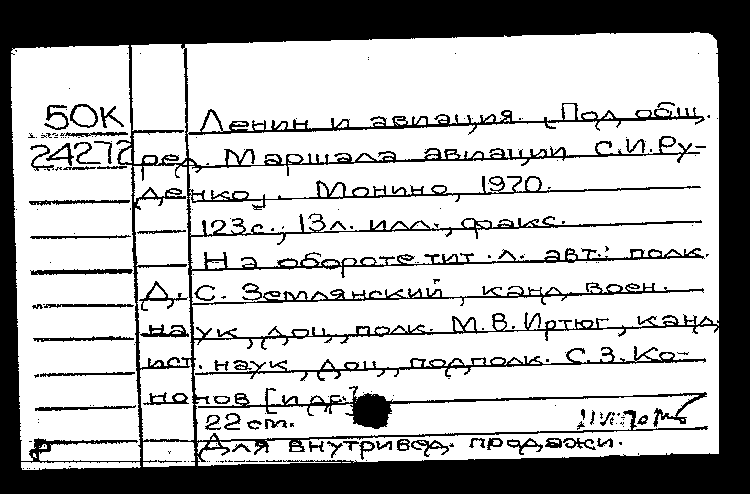 50К
Ленин и авиация. [Под общ.
24272 ред. Маршала авиации С.И.Ру-
денко]. Монино, 1970.
123с.; 13л. илл., факс.
На обороте тит. л. авт.: полк.
Д.С. Землянский, канд. воен.
наук, доц., полк. М.В.Иртюг, канд.
ист. наук, доц., подполк. С.З.Ко-
нонов [и др.]
22 cm.
Для внутривед. продажи.